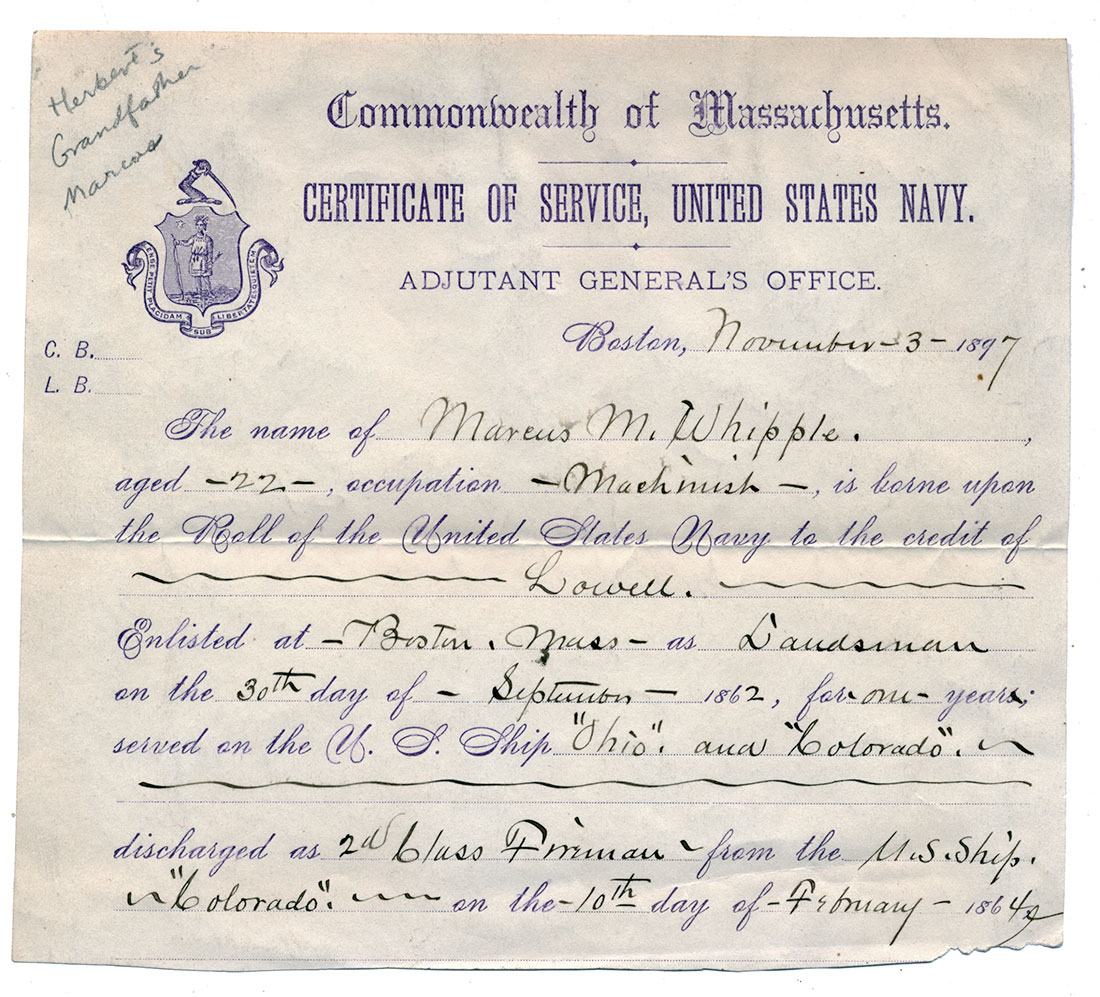 Herbert's
Grandfather
Marcus
Commonwealth of Massachusetts.
CERTIFICATE OF SERVICE, UNITED STATES NAVY.
ADJUTANT GENERAL'S OFFICE.
ENSE PETIT PLACIDAM SUB LIBERTATE QUIETEM
Boston, November - 3 - 1897
C. B.
L. B.
The name of Marcus M. Whipple. ,
aged - 22 - , occupation - Machinist - , is borne upon
the Roll of the United States Navy to the credit of
Lowell.
Enlisted at - Boston. Mass - as Landsman
on the 30th day of - September - 1862, for - one - years;
served on the U. S. Ship "Ohio". and "Colorado".
discharged as 2d Class Fireman - from the U.S. Ship.
"Colorado". on the - 10th day of - February - 1864